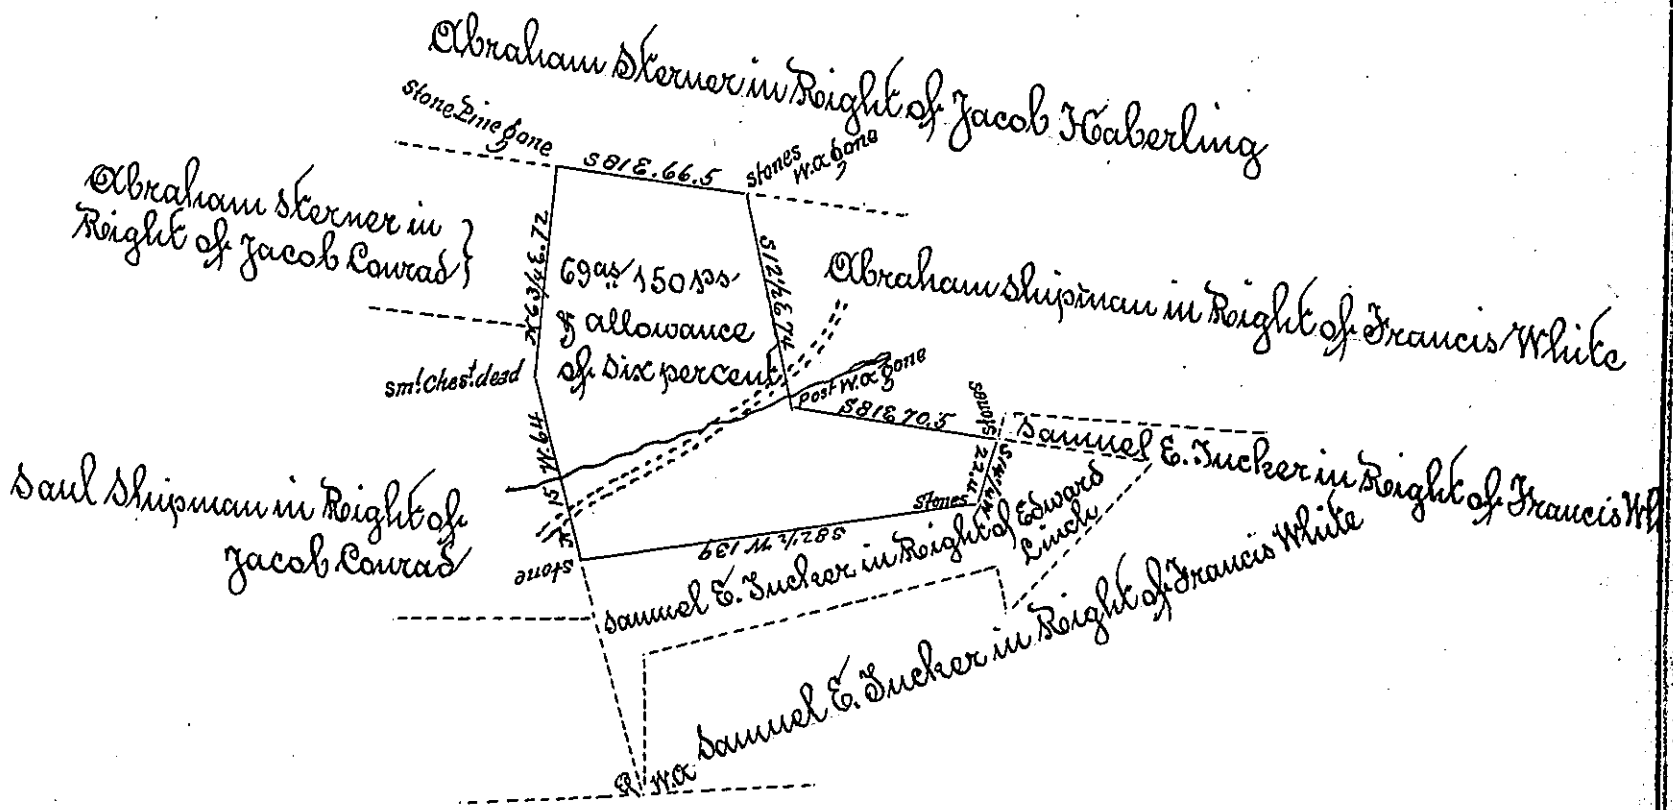 Abraham Sterner in Right of Jacob Haberling
Stone Pine gone
S 81 E. 66.5
stones
w.o gone
Abraham Sterner in
Right of Jacob Conrad
N 6 3/4 E. 72
69 as 150 ps
& allowance
of six percent
S 12 1/2 E 74
Abraham Shipman in Right of Francis White
sml. Chest. dead
Post w.o gone
S 81 E 70.5
stones
Samuel E. Tucker in Right of Francis Wh
N 15 W. 64
Saul Shipman in Right of
Jacob Conrad
stones
S 82 1/2 W 139
stone
Samuel E. Tucker in Right of Edward
Linch
Samuel E. Tucker in Right of Francis White
w.o